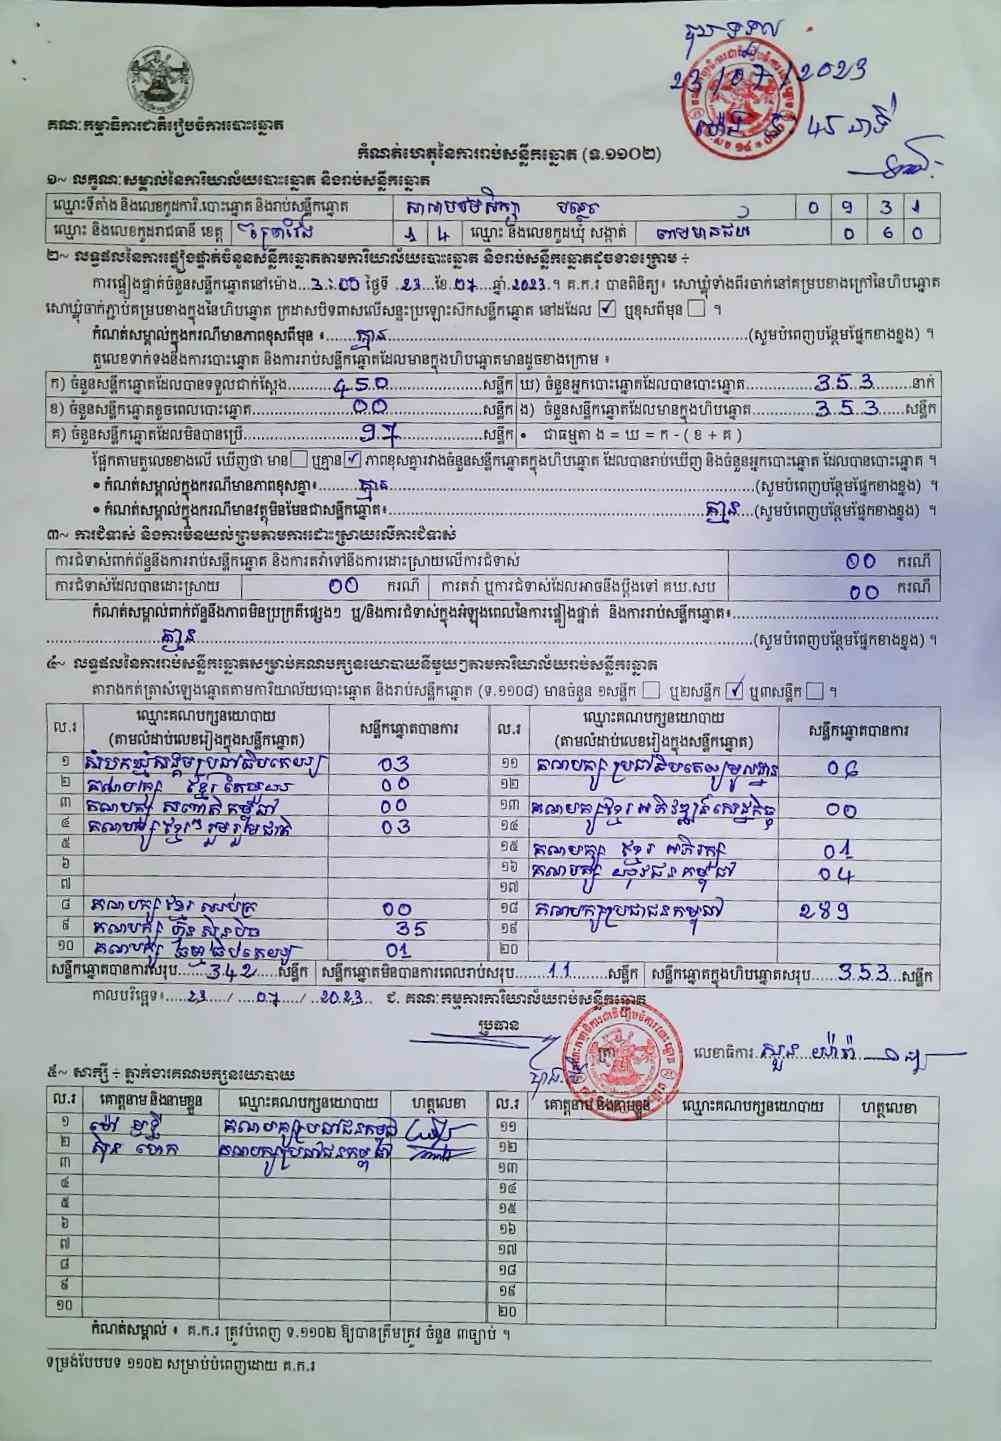 23/07/2023
45 នាទី
គណៈកម្មាធិការជាតិរៀបចំការបោះឆ្នោត
កំណត់ហេតុនៃការរាប់សន្លឹកឆ្នោត (ទ.១១០២)
១~ លក្ខណៈសម្គាល់នៃការិយាល័យបោះឆ្នោត និងរាប់សន្លឹកឆ្នោត
ឈ្មោះទីតាំង និងលេខកូដការិ.បោះឆ្នោត និងរាប់សន្លឹកឆ្នោត 0 9 3 1
ឈ្មោះ និងលេខកូដរាជធានី ខេត្ត ព្រៃវែង 1 4 ឈ្មោះ និងលេខកូដឃុំ សង្កាត់ 0 6 0
២~ លទ្ធផលនៃការផ្ទៀងផ្ទាត់ចំនួនសន្លឹកឆ្នោតតាមការិយាល័យបោះឆ្នោត និងរាប់សន្លឹកឆ្នោតដូចខាងក្រោម ÷
ការផ្ទៀងផ្ទាត់ចំនួនសន្លឹកឆ្នោតនៅម៉ោង...3:00 ថ្ងៃទី .23...ខែ.07...ឆ្នាំ.2023.។ គ.ក.រ បានពិនិត្យ៖ សោឃ្លុំទាំងពីរចាក់នៅគម្របខាងក្រៅនៃហិបឆ្នោត
សោឃ្លុំចាក់ភ្ជាប់គម្របខាងក្នុងនៃហិបឆ្នោត ក្រដាសបិទពាសលើសន្ទះប្រឡោះស៊កសន្លឹកឆ្នោត នៅដដែល ☑ ឬខុសពីមុន ☐ ។
កំណត់សម្គាល់ក្នុងករណីមានភាពខុសពីមុន ៖ គ្មាន (សូមបំពេញបន្ថែមផ្នែកខាងខ្នង) ។
តួលេខទាក់ទងនឹងការបោះឆ្នោត និងការរាប់សន្លឹកឆ្នោតដែលមានក្នុងហិបឆ្នោតមានដូចខាងក្រោម ៖
ក) ចំនួនសន្លឹកឆ្នោតដែលបានទទួលជាក់ស្តែង 450 សន្លឹក ឃ) ចំនួនអ្នកបោះឆ្នោតដែលបានបោះឆ្នោត 353 នាក់
ខ) ចំនួនសន្លឹកឆ្នោតខូចពេលបោះឆ្នោត 00 សន្លឹក ង) ចំនួនសន្លឹកឆ្នោតដែលមានក្នុងហិបឆ្នោត 353 សន្លឹក
គ) ចំនួនសន្លឹកឆ្នោតដែលមិនបានប្រើ 97 សន្លឹក • ជាធម្មតា ង = ឃ = ក - ( ខ + គ )
ផ្អែកតាមតួលេខខាងលើ ឃើញថា មាន ☐ ឬគ្មាន ☑ ភាពខុសគ្នារវាងចំនួនសន្លឹកឆ្នោតក្នុងហិបឆ្នោត ដែលបានរាប់ឃើញ និងចំនួនអ្នកបោះឆ្នោត ដែលបានបោះឆ្នោត ។
• កំណត់សម្គាល់ក្នុងករណីមានភាពខុសគ្នា៖ គ្មាន (សូមបំពេញបន្ថែមផ្នែកខាងខ្នង) ។
• កំណត់សម្គាល់ក្នុងករណីមានវត្ថុមិនមែនជាសន្លឹកឆ្នោត៖ គ្មាន (សូមបំពេញបន្ថែមផ្នែកខាងខ្នង) ។
៣~ ការជំទាស់ និងការមិនយល់ព្រមតាមការដោះស្រាយលើការជំទាស់
ការជំទាស់ពាក់ព័ន្ធនឹងការរាប់សន្លឹកឆ្នោត និងការតវ៉ាទៅនឹងការដោះស្រាយលើការជំទាស់ 00 ករណី
ការជំទាស់ដែលបានដោះស្រាយ 00 ករណី ការតវ៉ា ឬការជំទាស់ដែលអាចនឹងប្តឹងទៅ គឃ.សប 00 ករណី
កំណត់សម្គាល់ពាក់ព័ន្ធនឹងភាពមិនប្រក្រតីផ្សេងៗ ឬ/និងការជំទាស់ក្នុងអំឡុងពេលនៃការផ្ទៀងផ្ទាត់ និងការរាប់សន្លឹកឆ្នោត៖
គ្មាន (សូមបំពេញបន្ថែមផ្នែកខាងខ្នង) ។
៤~ លទ្ធផលនៃការរាប់សន្លឹកឆ្នោតសម្រាប់គណបក្សនយោបាយនីមួយៗតាមការិយាល័យរាប់សន្លឹកឆ្នោត
តារាងកត់ត្រាសំឡេងឆ្នោតតាមការិយាល័យបោះឆ្នោត និងរាប់សន្លឹកឆ្នោត (ទ.១១០៨) មានចំនួន ១សន្លឹក ☐ ឬ២សន្លឹក ☑ ឬ៣សន្លឹក ☐ ។
ល.រ ឈ្មោះគណបក្សនយោបាយ សន្លឹកឆ្នោតបានការ ល.រ ឈ្មោះគណបក្សនយោបាយ សន្លឹកឆ្នោតបានការ
(តាមលំដាប់លេខរៀងក្នុងសន្លឹកឆ្នោត) (តាមលំដាប់លេខរៀងក្នុងសន្លឹកឆ្នោត)
១ សំបុកឃ្មុំសង្គមប្រជាធិបតេយ្យ 03 ១១ គណបក្សប្រជាធិបតេយ្យមូលដ្ឋាន
២ គណបក្ស ខ្មែរ 00 ១២
៣ គណបក្ស សញ្ជាតិកម្ពុជា 00 ១៣ គណបក្សខ្មែរអភិវឌ្ឍន៍សេដ្ឋកិច្ច 00
៤ គណបក្ស ខ្មែររួបរួមជាតិ 03 ១៤
៥ ១៥ គណបក្ស ខ្មែរ អភិរក្ស 01
៦ ១៦ គណបក្ស យុវជនកម្ពុជា 04
៧ ១៧
៨ គណបក្ស ខ្មែរ 00 ១៨ គណបក្សប្រជាជនកម្ពុជា 289
៩ គណបក្ស ហ៊្វុនស៊ិនប៉ិច 35 ១៩
១០ គណបក្ស 01 ២០
សន្លឹកឆ្នោតបានការសរុប 342 សន្លឹក សន្លឹកឆ្នោតមិនបានការពេលរាប់សរុប 11 សន្លឹក សន្លឹកឆ្នោតក្នុងហិបឆ្នោតសរុប 353 សន្លឹក
កាលបរិច្ឆេទ៖ 23 / 07 / 2023 ជ. គណៈកម្មការការិយាល័យរាប់សន្លឹកឆ្នោត
ប្រធាន
លេខាធិការ
៥~ សាក្សី ÷ ភ្នាក់ងារគណបក្សនយោបាយ
ល.រ គោត្តនាម និងនាមខ្លួន ឈ្មោះគណបក្សនយោបាយ ហត្ថលេខា ល.រ គោត្តនាម និងនាមខ្លួន ឈ្មោះគណបក្សនយោបាយ ហត្ថលេខា
១ គណបក្សប្រជាជនកម្ពុជា ១១
២ គណបក្សប្រជាជនកម្ពុជា ១២
៣ ១៣
៤ ១៤
៥ ១៥
៦ ១៦
៧ ១៧
៨ ១៨
៩ ១៩
១០ ២០
កំណត់សម្គាល់ ៖ គ.ក.រ ត្រូវបំពេញ ទ.១១០២ ឱ្យបានត្រឹមត្រូវ ចំនួន ៣ច្បាប់ ។
ទម្រង់បែបបទ ១១០២ សម្រាប់បំពេញដោយ គ.ក.រ